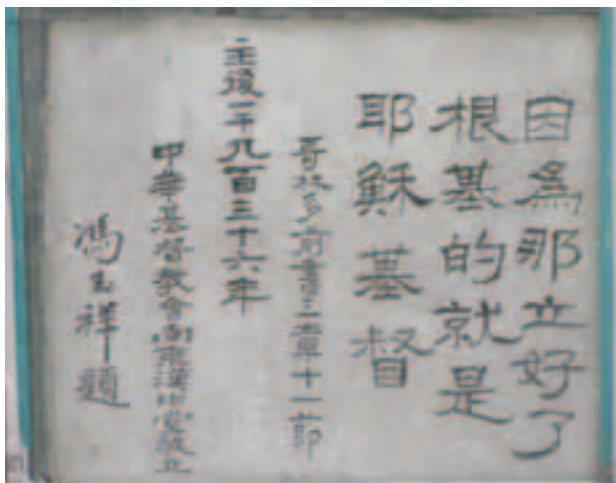 因爲那立好了
根基的就是
耶穌基督
哥林多前書三章十一節
主後一千九百三十六年
中華基督教會南京漢中堂敬立
馮玉祥題